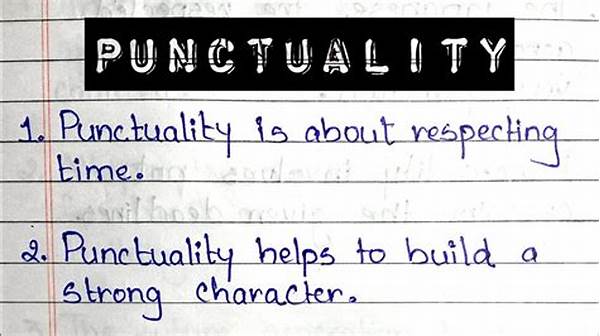 PUNCTUALITY
1. Punctuality is about respecting
time.
2. Punctuality helps to build a
strong character.